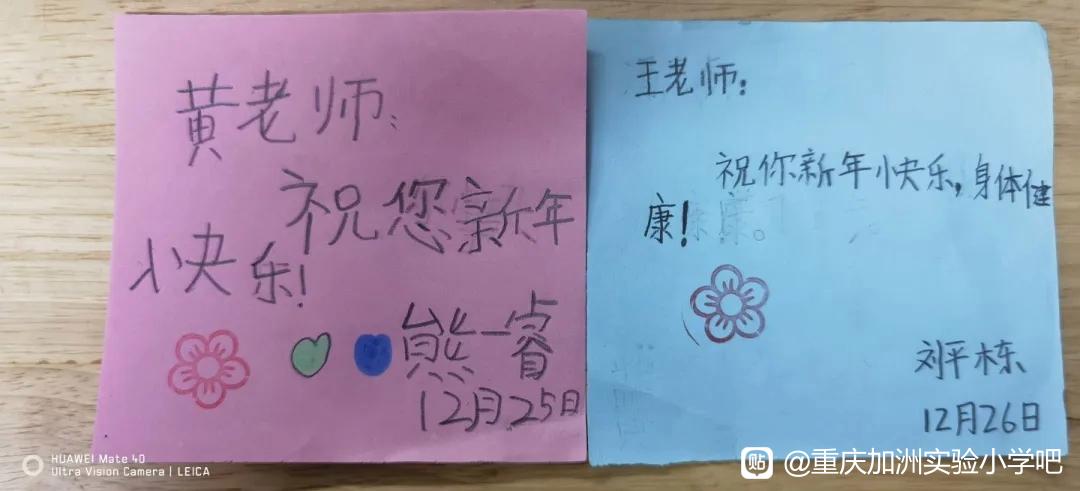 黄老师:
祝您新年
快乐!
熊一睿
12月25日
王老师:
祝你新年快乐,身体健
康!
刘平栋
12月26日
HUAWEI Mate 40
Ultra Vision Camera | LEICA
贴 @重庆加洲实验小学吧